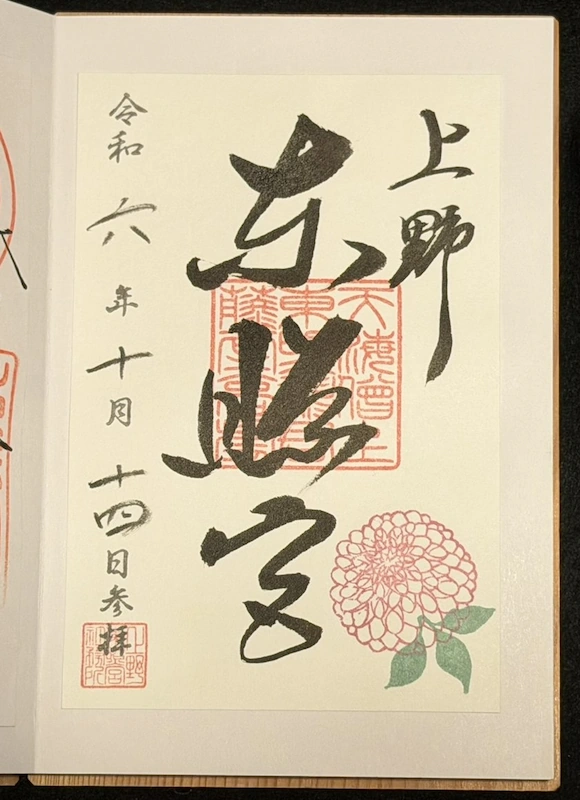 上野
東照宮
令和六年十月十四日参拝